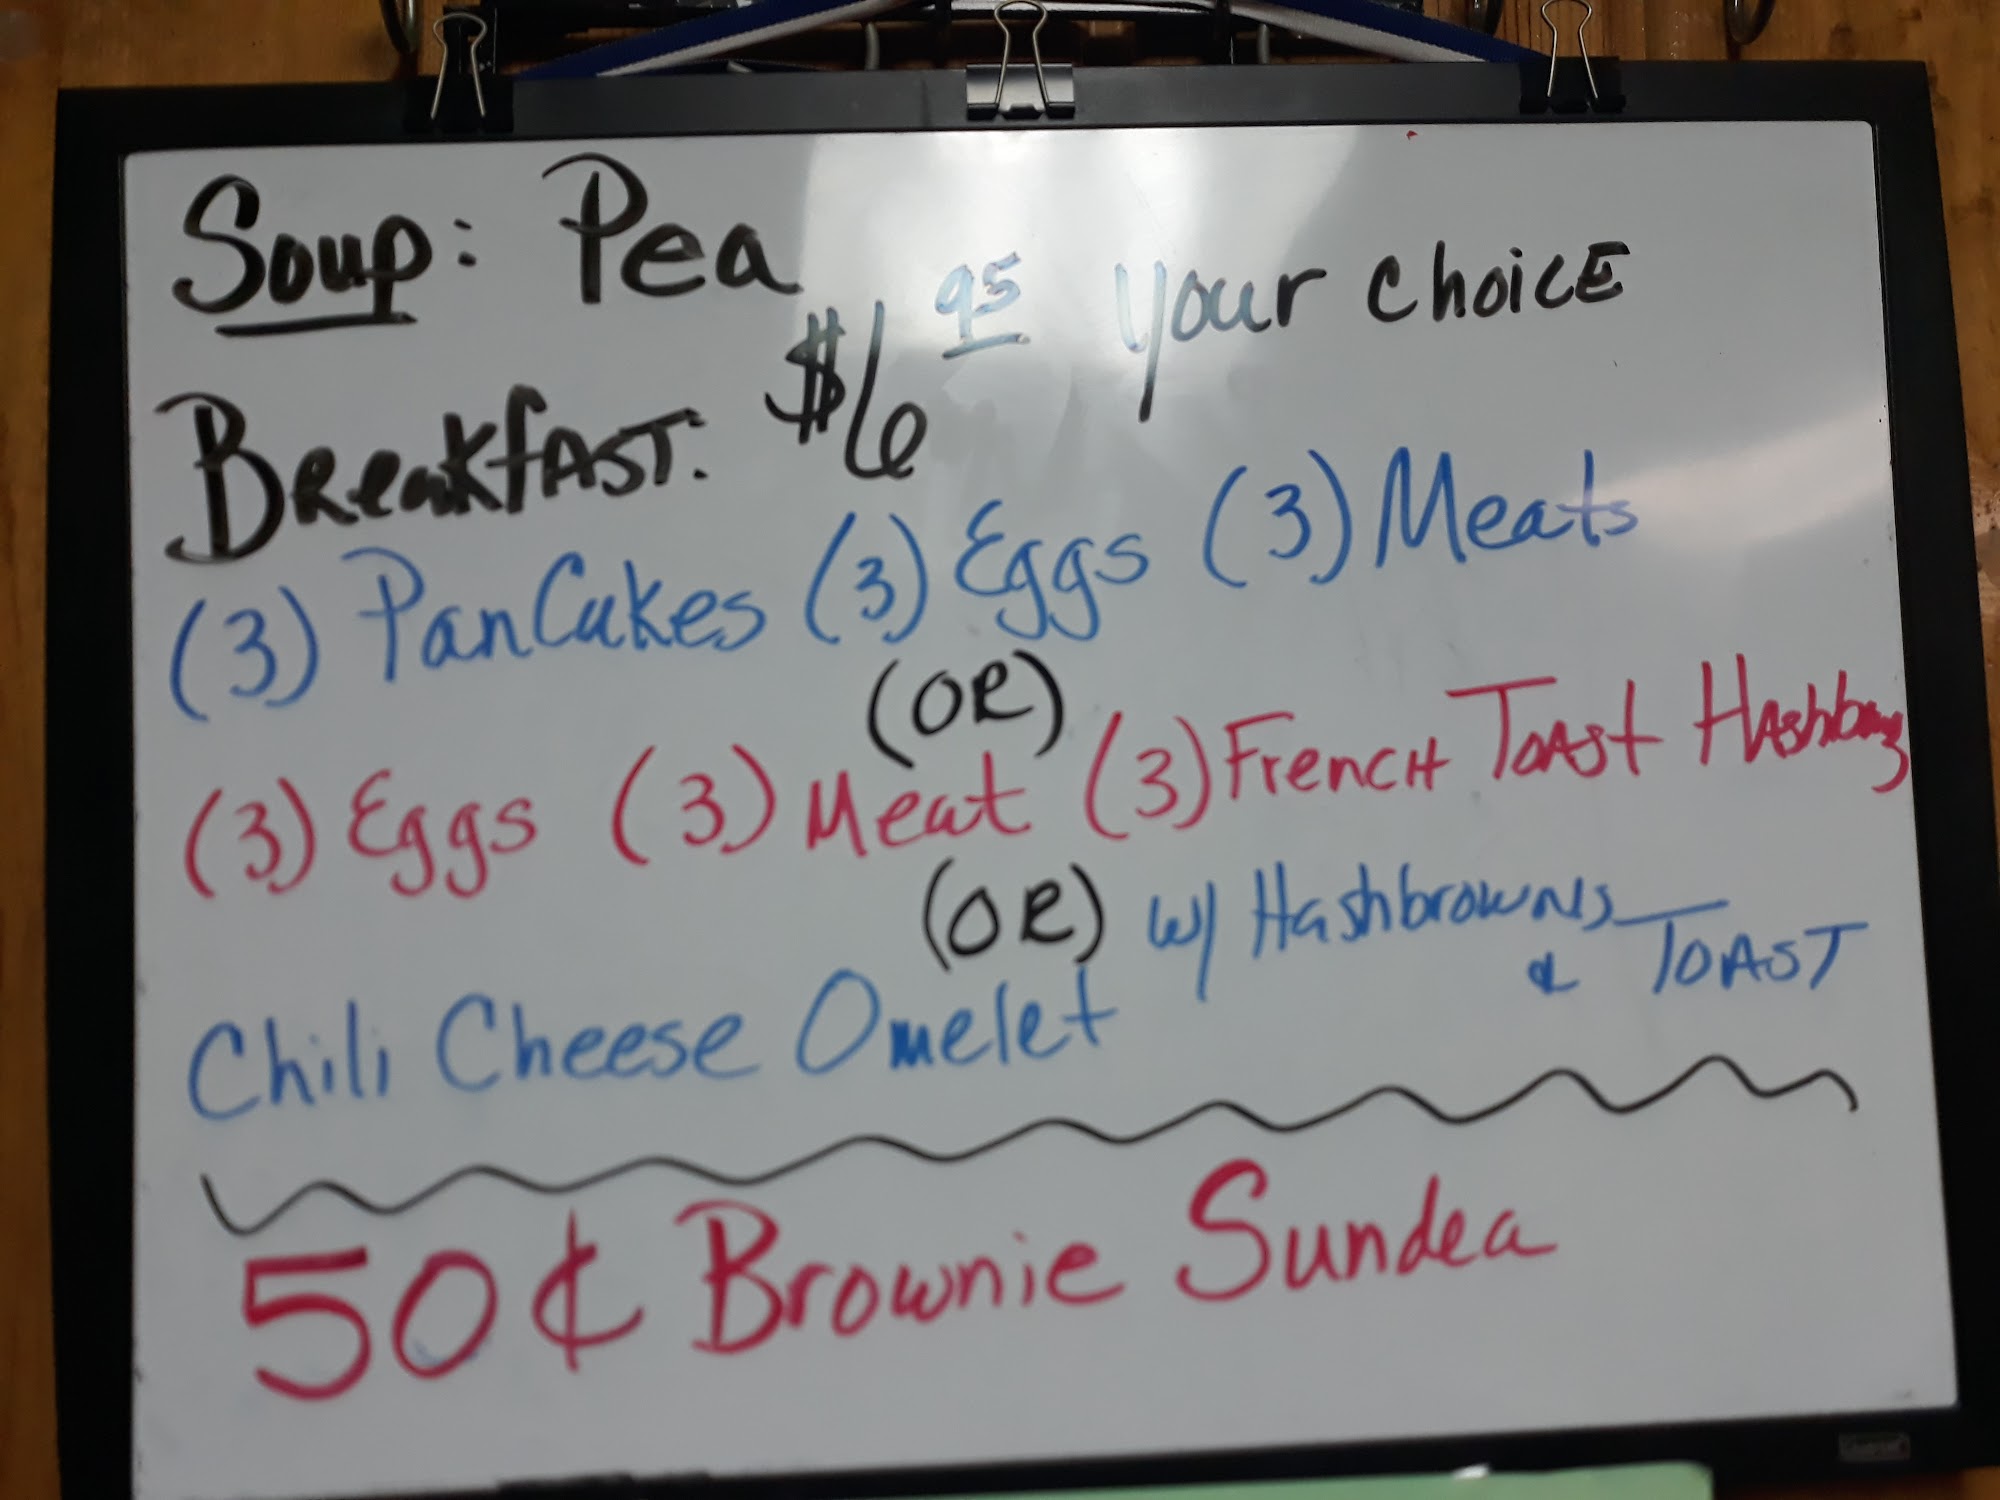 Soup: Pea
Breakfast: $6 95 your choice
(3) Pancakes (3) Eggs (3) Meats
(OR)
(3) Eggs (3) Meat (3) French Toast
(OR) w/ Hashbrowns
& Toast
Chili Cheese Omelet
50¢ Brownie Sundea